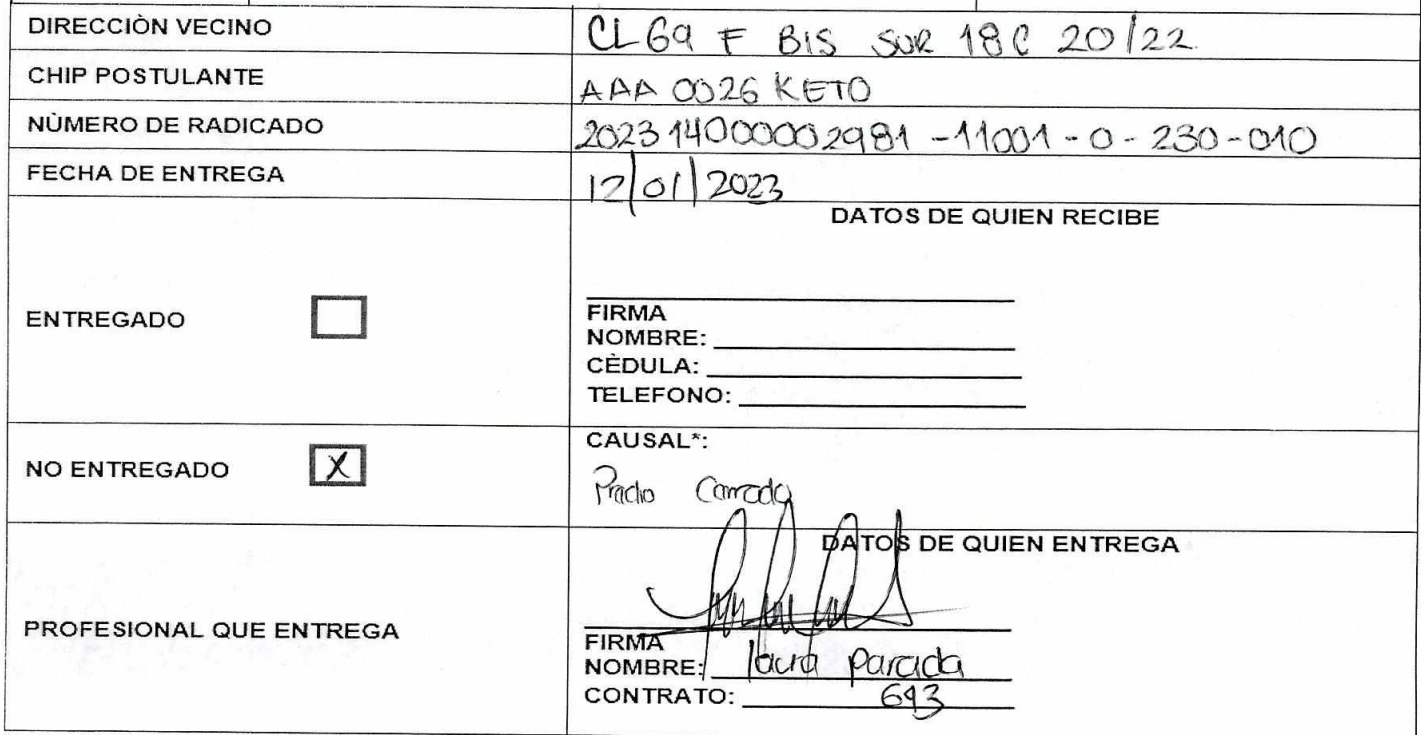 DIRECCIÒN VECINO CL 69 F BIS SUR 18C 20/22
CHIP POSTULANTE AAA 0026 KETO
NÙMERO DE RADICADO 2023140000002981-11001-0-230-010
FECHA DE ENTREGA 12/01/2023
DATOS DE QUIEN RECIBE
ENTREGADO
FIRMA
NOMBRE:
CÈDULA:
TELEFONO:
NO ENTREGADO X
CAUSAL*:
Predio Cerrado
DATOS DE QUIEN ENTREGA
PROFESIONAL QUE ENTREGA
FIRMA
NOMBRE: laura Parada
CONTRATO: 693